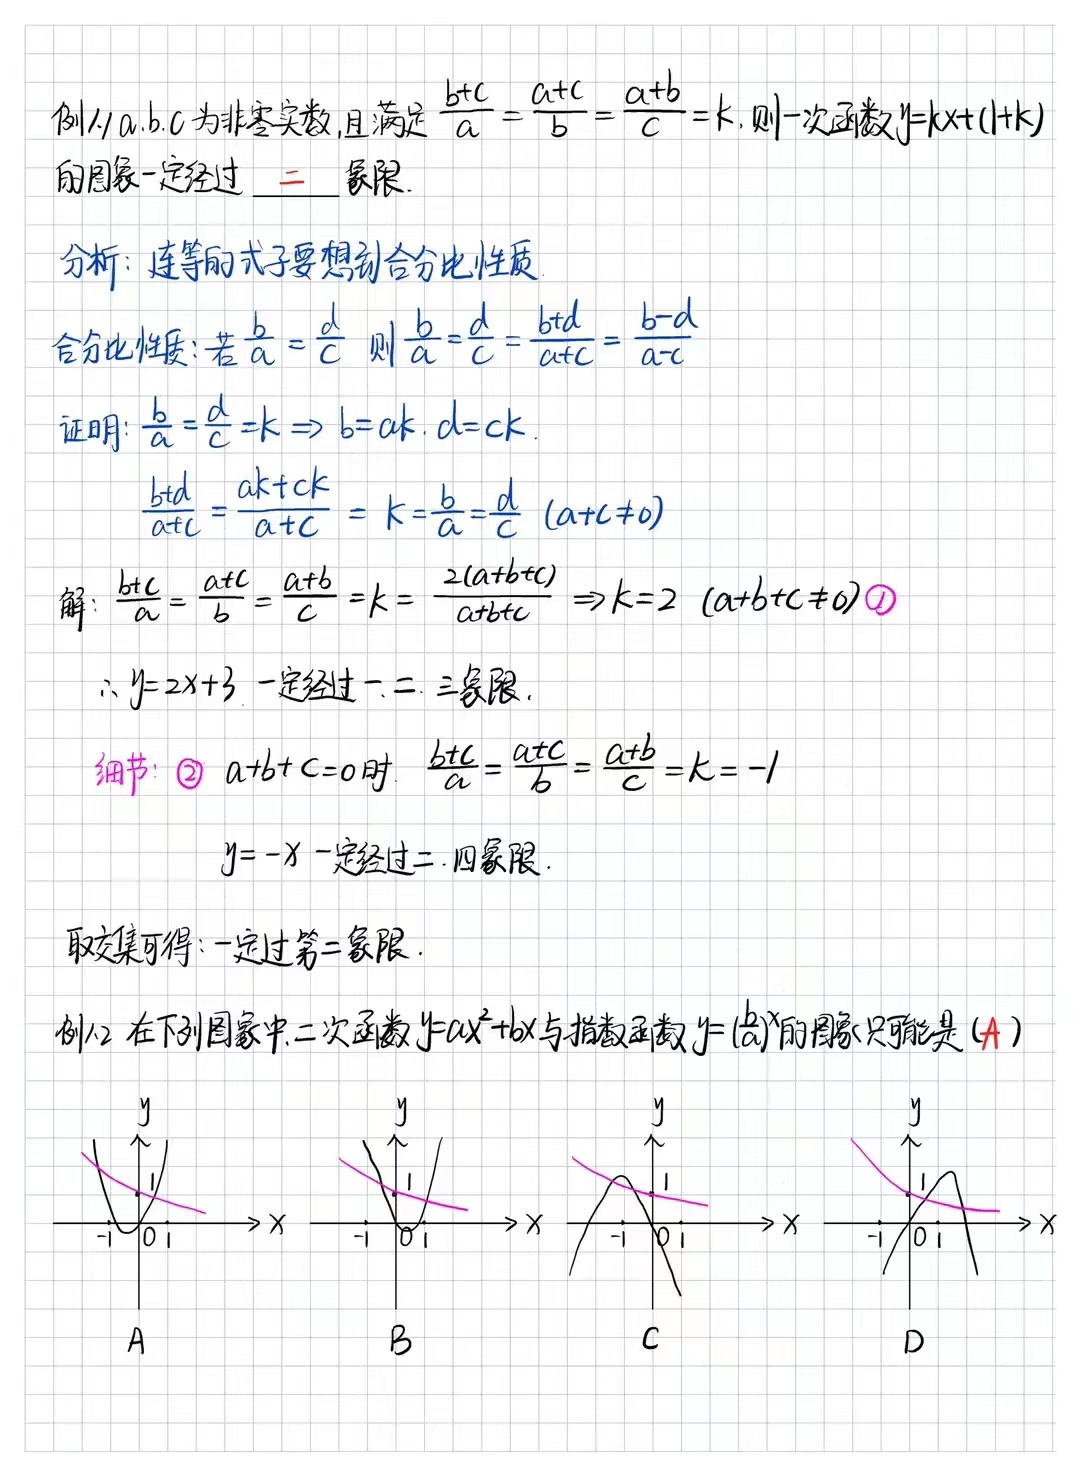 例1.1 a.b.c为非零实数,且满足 (b+c)/a = (a+c)/b = (a+b)/c = k. 则一次函数y=kx+(1+k)
的图象一定经过 二 象限.
分析: 连等的式子要想到合分比性质.
合分比性质: 若 b/a = d/c 则 b/a = d/c = (b+d)/(a+c) = (b-d)/(a-c)
证明: b/a = d/c = k ⇒ b=ak. d=ck.
(b+d)/(a+c) = (ak+ck)/(a+c) = k = b/a = d/c (a+c≠0)
解: (b+c)/a = (a+c)/b = (a+b)/c = k = 2(a+b+c)/(a+b+c) ⇒ k=2 (a+b+c≠0) ①
∴ y=2x+3 一定经过一.二.三象限.
细节: ② a+b+c=0时. (b+c)/a = (a+c)/b = (a+b)/c = k = -1
y=-x 一定经过二.四象限.
取交集可得: 一定过第二象限.
例1.2 在下列图象中,二次函数y=ax²+bx与指数函数y=(b/a)^x的图象只可能是(A)
y y y y
1 1 1 1
x x x x
-1 0 1 -1 0 1 -1 0 1 -1 0 1
A B C D